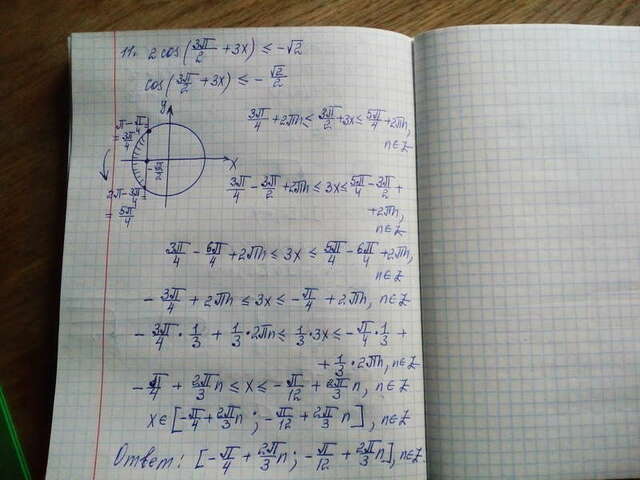 11. 2cos(3π/2 + 3x) ≤ -√2
cos(3π/2 + 3x) ≤ -√2/2
y
π - π/4
= 3π/4
-√2/2
x
2π - 3π/4
= 5π/4
3π/4 + 2πn ≤ 3π/2 + 3x ≤ 5π/4 + 2πn,
n∈Z
3π/4 - 3π/2 + 2πn ≤ 3x ≤ 5π/4 - 3π/2 +
+ 2πn,
n∈Z
3π/4 - 6π/4 + 2πn ≤ 3x ≤ 5π/4 - 6π/4 + 2πn,
n∈Z
- 3π/4 + 2πn ≤ 3x ≤ - π/4 + 2πn, n∈Z
- 3π/4 · 1/3 + 1/3 · 2πn ≤ 1/3 · 3x ≤ - π/4 · 1/3 +
+ 1/3 · 2πn, n∈Z
- π/4 + 2π/3 n ≤ x ≤ - π/12 + 2π/3 n, n∈Z
x∈[- π/4 + 2π/3 n ; - π/12 + 2π/3 n], n∈Z
Ответ: [- π/4 + 2π/3 n; - π/12 + 2π/3 n], n∈Z.